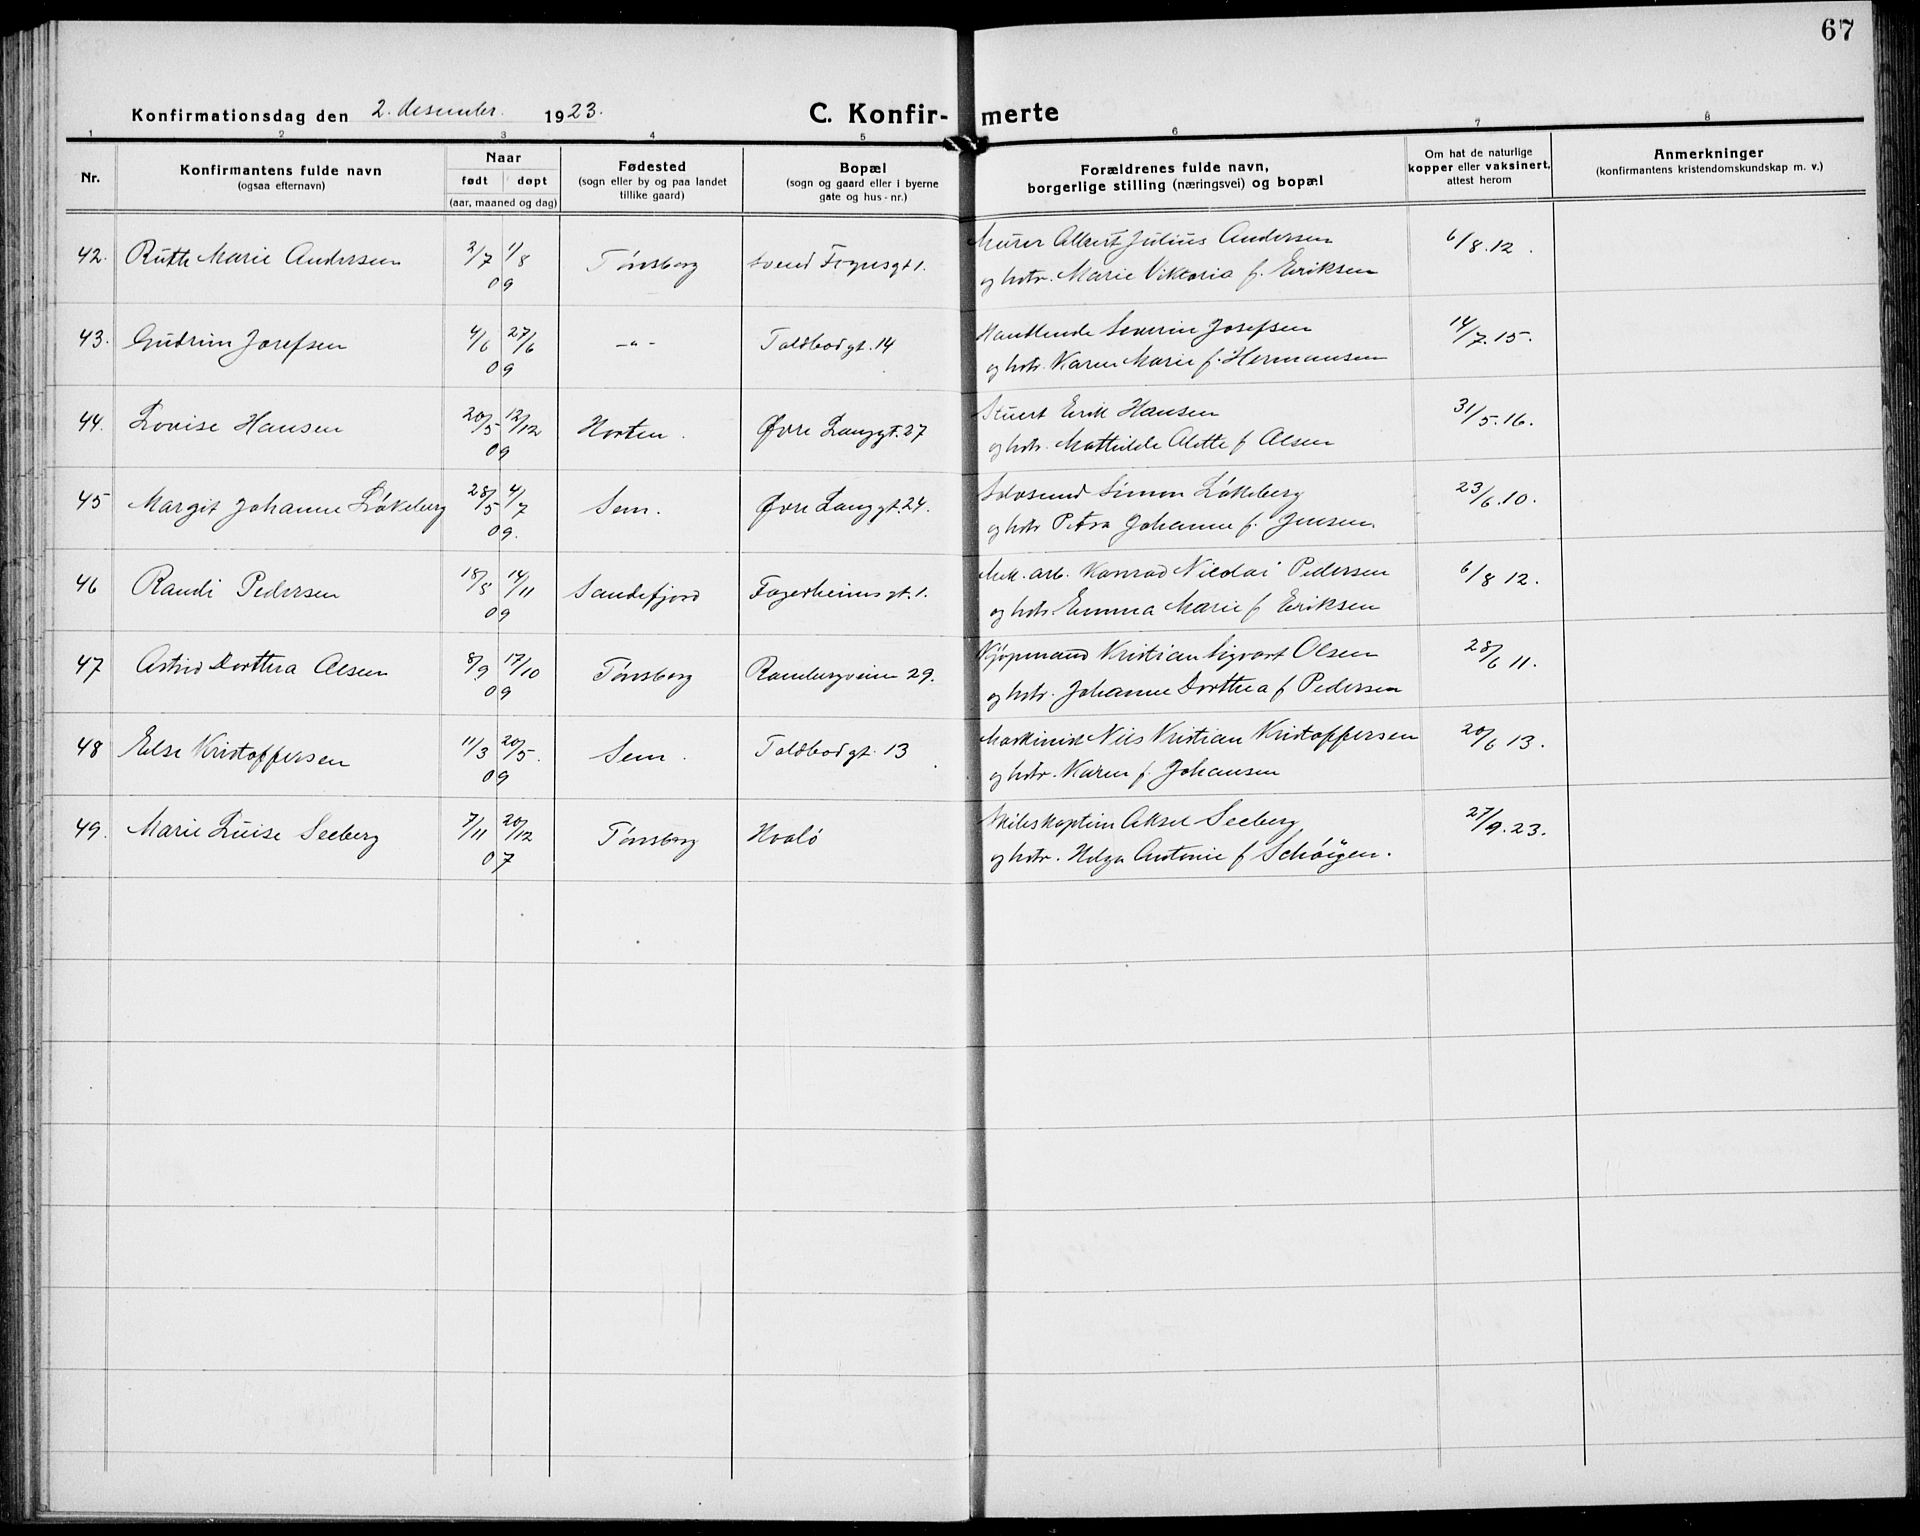 67
Konfirmationsdag den 2. desember. 1923.
C. Konfir- merte
1 2 3 4 5 6 7 8
Nr.
Konfirmantens fulde navn
(ogsaa efternavn)
Naar
født døpt
(aar, maaned og dag)
Fødested
(sogn eller by og paa landet
tillike gaard)
Bopæl
(sogn og gaard eller i byerne
gate og hus - nr.)
Forældrenes fulde navn,
borgerlige stilling (næringsvei) og bopæl
Om hat de naturlige
kopper eller vaksinert,
attest herom
Anmerkninger
(konfirmantens kristendomskundskap m. v.)
42. Ruth Marie Andersen 2/7 1/8 Tønsberg Svend Foynsgt 1. Murer Albert Julius Andersen 6/8.12.
09 og hstr. Marie Viktoria f. Eriksen
43. Gudrun Josefsen 4/6 27/6 -"- Toldbodgt. 14 Handlende Severin Josefsen 14/7.15.
09 og hstr. Karen Marie f. Hermansen
44. Lovise Hansen 20/5 12/12 Horten. Øvre Langgt. 27 Stuert Erik Hansen 31/5.16.
09 og hstr. Mathilde Alette f Olsen
45 Margit Johanne Løkeberg 28/5 4/7 Sem. Øvre Langgt. 24. Simon Løkeberg 23/6.10.
09. og hstr Petra Johanne f. Jensen
46 Randi Pedersen 18/8 14/11 Sandefjord Fagerheimsgt. 1. Mek. arb. Konrad Nicolai Pedersen 6/8 12.
09 og hstr. Emma Marie f Eriksen
47 Astrid Dorthea Olsen 8/9 17/10 Tønsberg Rambergveien 29. Kjøpmand Kristian Sigvart Olsen 28/6 11.
09 og hstr. Johanne Dorthea f Pedersen
48 Else Kristoffersen 11/3 20/5. Sem. Toldbodgt. 13 Maskinist Nils Kristian Kristoffersen 20/6 13.
09 og hstr. Karen f. Johansen
49. Marie Luise Seeberg 7/11 20/12 Tønsberg Hvalø Skibskaptein Aksel Seeberg 27/9.23.
07 og hstr. Helga Antonie f Schøigen.